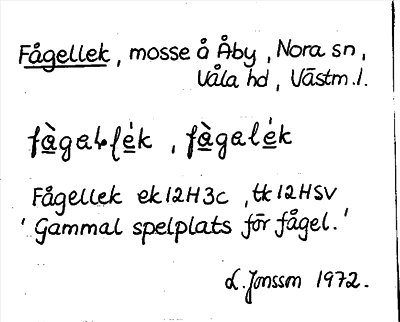 Fågellek, mosse å Åby, Nora sn,
Våla hd, Västm.l.
fàgalfék, fàgalék
Fågellek ek 12H3c, tk 12HSV
'Gammal spelplats för fågel.'
L. Jonsson 1972.